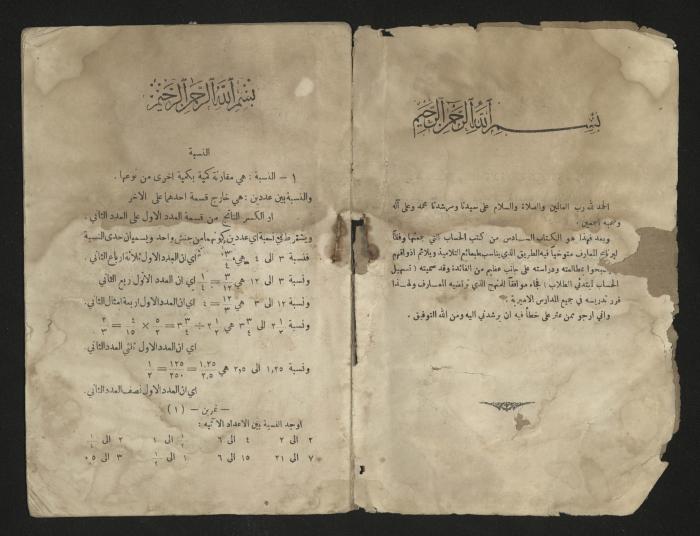 بسم الله الرحمن الرحيم
الحمد لله رب العالمين والصلاة والسلام على سيدنا ومرشدنا محمد وعلى آله
وصحبه اجمعين .
وبعد فهذا هو الكتاب السادس من كتب الحساب التي جمعتها وفقاً
المعارف متوخياً فيه الطريق الذي يناسب طبائع التلاميذ ويلائم اذواقهم
بمطالعته ودراسته على جانب عظيم من الفائدة وقد سميته ( تسهيل
الحساب الطلاب ) فجاء موافقاً للمنهج الذي ترتضيه المعارف ولهذا
قرر تدريسه في جميع المدارس الاميرية .
واني ارجو ممن عثر على خطأ فيه ان يرشدني اليه ومن الله التوفيق .
بسم الله الرحمن الرحيم
النسبة
١ – النسبة : هي مقارنة كمية بكمية اخرى من نوعها .
والنسبة بين عددين : هي خارج قسمة احدهما على الآخر
او الكسر الناتج من قسمة العدد الاول على العدد الثاني :
ويشترط في نسبة اي عددين كونهما من جنس واحد ويسميان حدى النسبة
فنسبة ٣ الى ٤ هي ٣/٤ اي ان العدد الاول ثلاثة ارباع الثاني
ونسبة ٣ الى ١٢ هي ٣/١٢ = ١/٤ اي ان العدد الاول ربع الثاني
ونسبة ١٢ الى ٣ هي ١٢/٣ = ٤ اي ان العدد الاول اربعة امثال الثاني .
ونسبة ٢ ١/٢ الى ٣ ٣/٤ هي ٢ ١/٢ ÷ ٣ ٣/٤ = ٥/٢ × ٤/١٥ = ٢/٣
اي ان العدد الاول ثلثي العدد الثاني .
ونسبة ١,٢٥ الى ٢,٥ هي ١,٢٥/٢,٥ = ١٢٥/٢٥٠ = ١/٢
اي ان العدد الاول نصف العدد الثاني .
– تمرين – (١)
اوجد النسبة بين الاعداد الآتية :
٢ الى ٢ ٤ الى ٦ ١/٢ الى ١ ٢ الى ١/٤
٧ الى ٢١ ١٥ الى ٦ ١ الى ١/٢ ٣ الى ٠٥